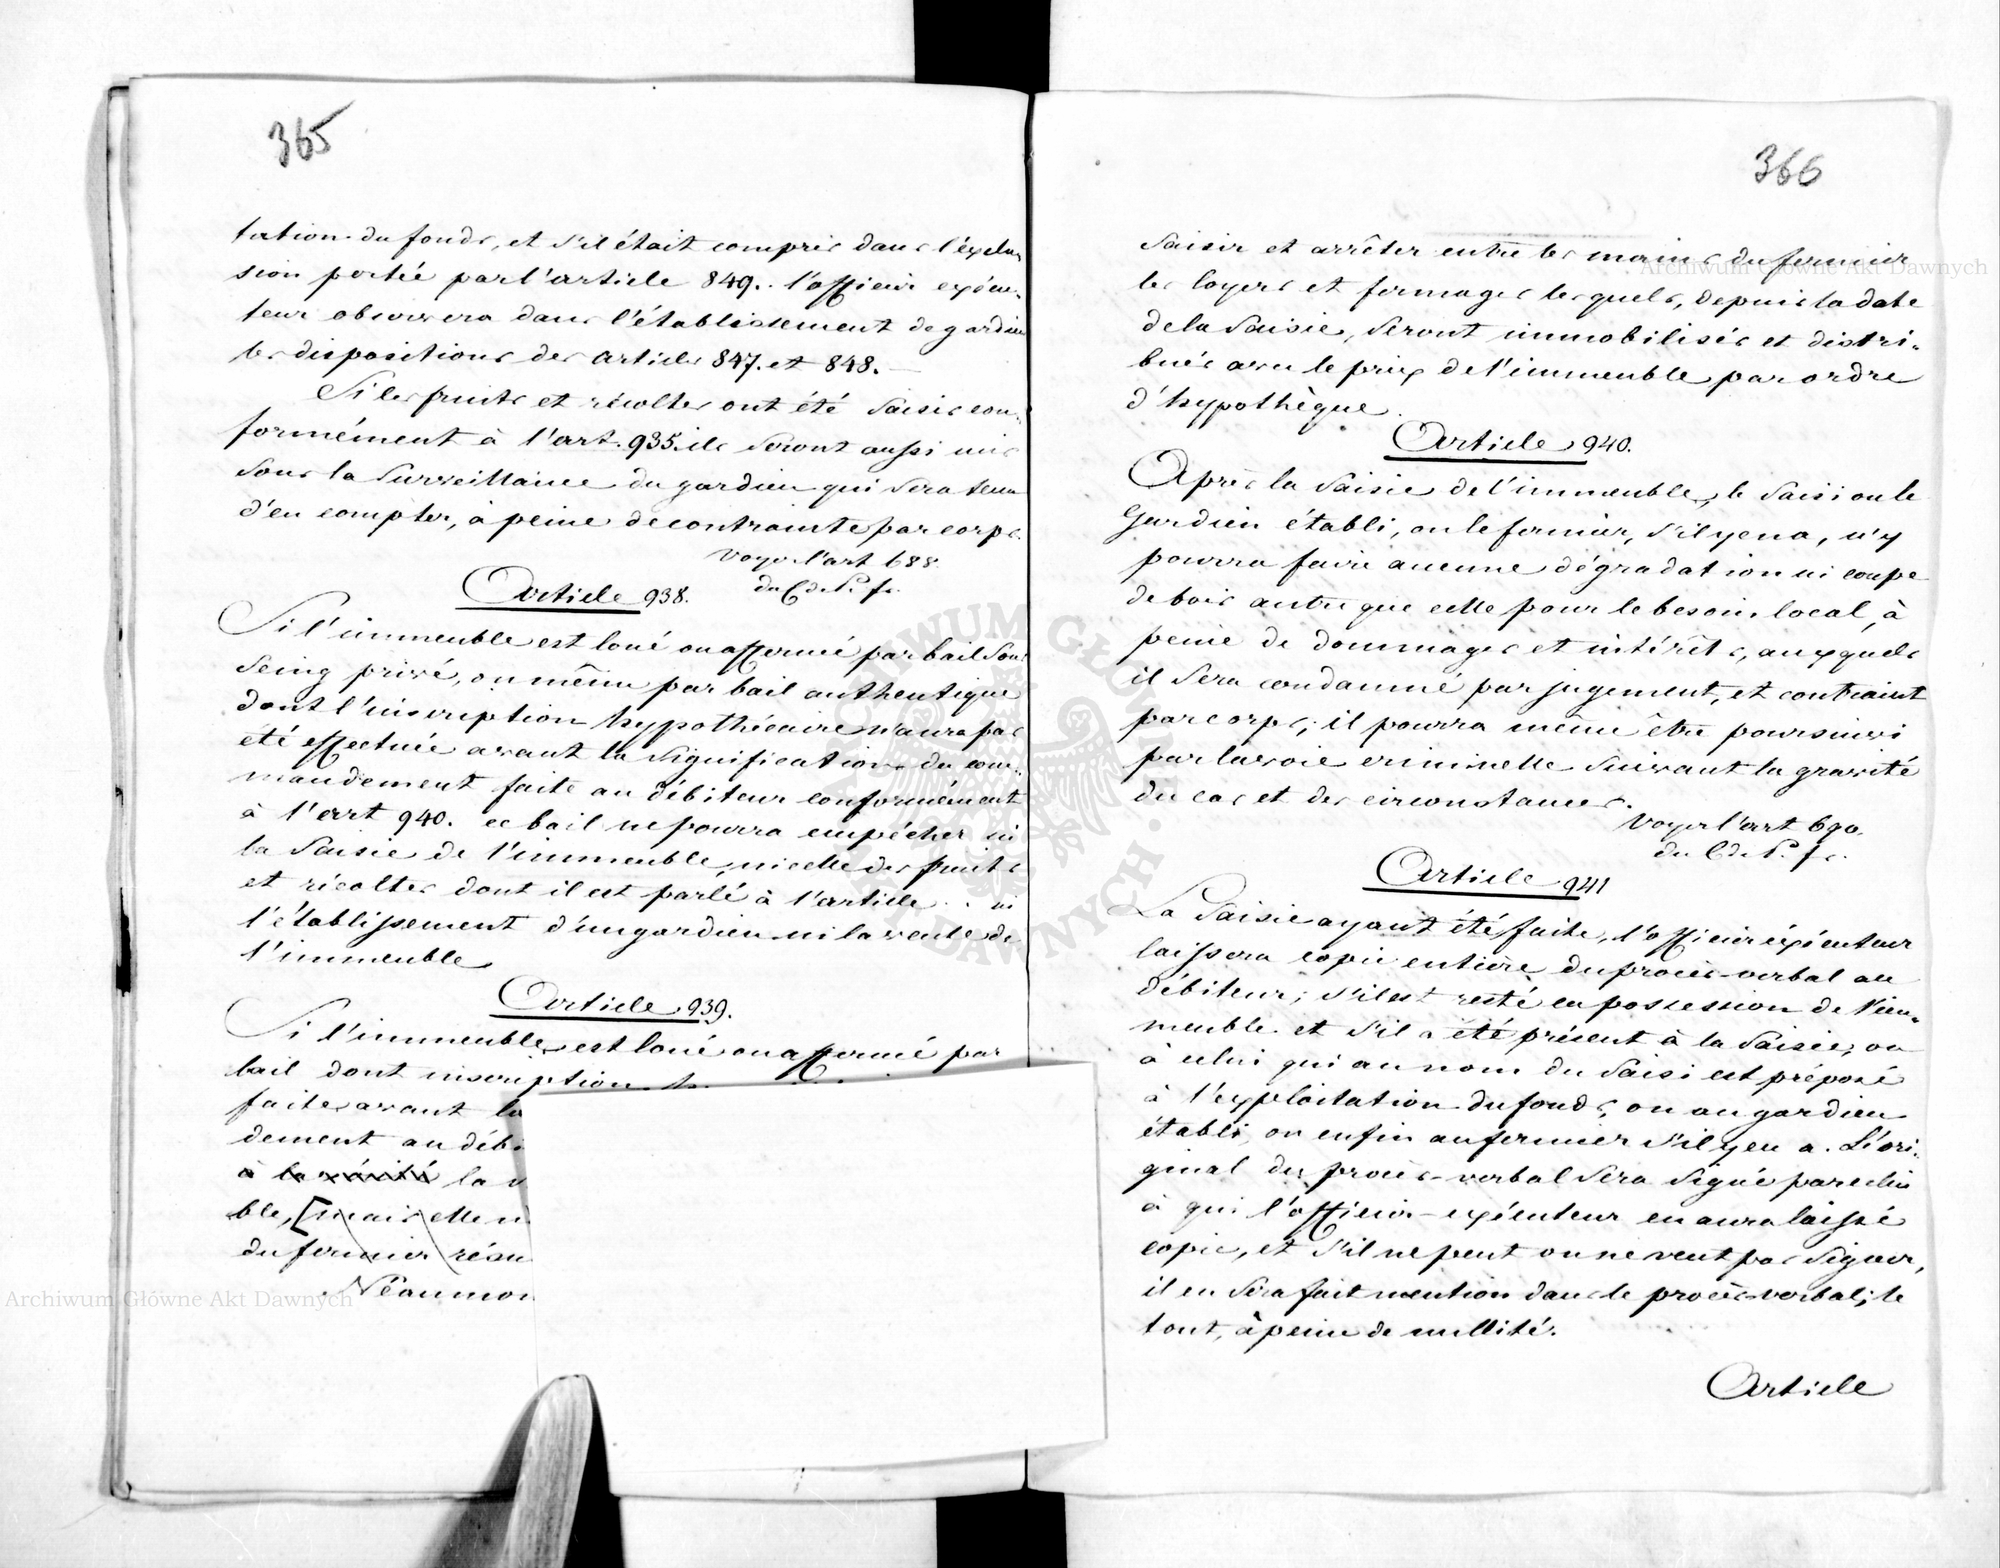 365
tation du fonds, et s'il était compris dans l'exclu-
sion portée par l'article 849. l'officier exécu-
teur observera dans l'établissement de gardien
les dispositions des articles 847. et 848.
Si les fruits et récoltes ont été saisis con-
formément à l'art. 935. ils seront aussi mis
sous la surveillance du gardien qui sera tenu
d'en compter, à peine de contrainte par corps.
Voyez l'art 688.
du C de P. fr.
Article 938.
Si l'immeuble est loué ou affermé par bail sous
seing privé, ou même par bail authentique
dont l'inscription hypothécaire n'aura pas
été effectuée avant la signification du com-
mandement faite au débiteur conformément
à l'art 940. ce bail ne pourra empêcher ni
la saisie de l'immeuble, ni celle des fruits
et récoltes dont il est parlé à l'article . . ni
l'établissement d'un gardien ni la vente de
l'immeuble
Article 939.
Si l'immeuble est loué ou affermé par
bail dont inscription
faite avant la
dement au débi
à la la
ble, [mais elle n
du fermier résu
Néanmoi
366
saisir et arrêter entre les mains du fermier
les loyers et fermages lesquels, depuis la date
de la saisie, seront immobilisés et distri-
bués avec le prix de l'immeuble par ordre
d'hypothèque.
Article 940.
Après la saisie de l'immeuble, le saisi ou le
gardien établi, ou le fermier, s'il y en a, n'y
pourra faire aucune dégradation ni coupe
de bois autre que celle pour le besoin local, à
peine de dommages et intérêts, auxquels
il sera condamné par jugement, et contraint
par corps; il pourra même être poursuivi
par la voie criminelle suivant la gravité
du cas et des circonstances.
Voyez l'art 690.
du C de P. fr.
Article 941
La saisie ayant été faite, l'officier exécuteur
laissera copie entière du procès-verbal au
débiteur; s'il est resté en possession de l'im-
meuble et s'il a été présent à la saisie; ou
à celui qui au nom du saisi est préposé
à l'exploitation du fonds, ou au gardien
établi, ou enfin au fermier s'il y en a. L'ori-
ginal du procès-verbal sera signé par celui
à qui l'officier-exécuteur en aura laissé
copie, et s'il ne peut ou ne veut pas signer,
il en sera fait mention dans le procès-verbal; le
tout, à peine de nullité.
Article
Archiwum Główne Akt Dawnych
Archiwum Główne Akt Dawnych
ARCHIWUM GŁÓWNE AKT DAWNYCH